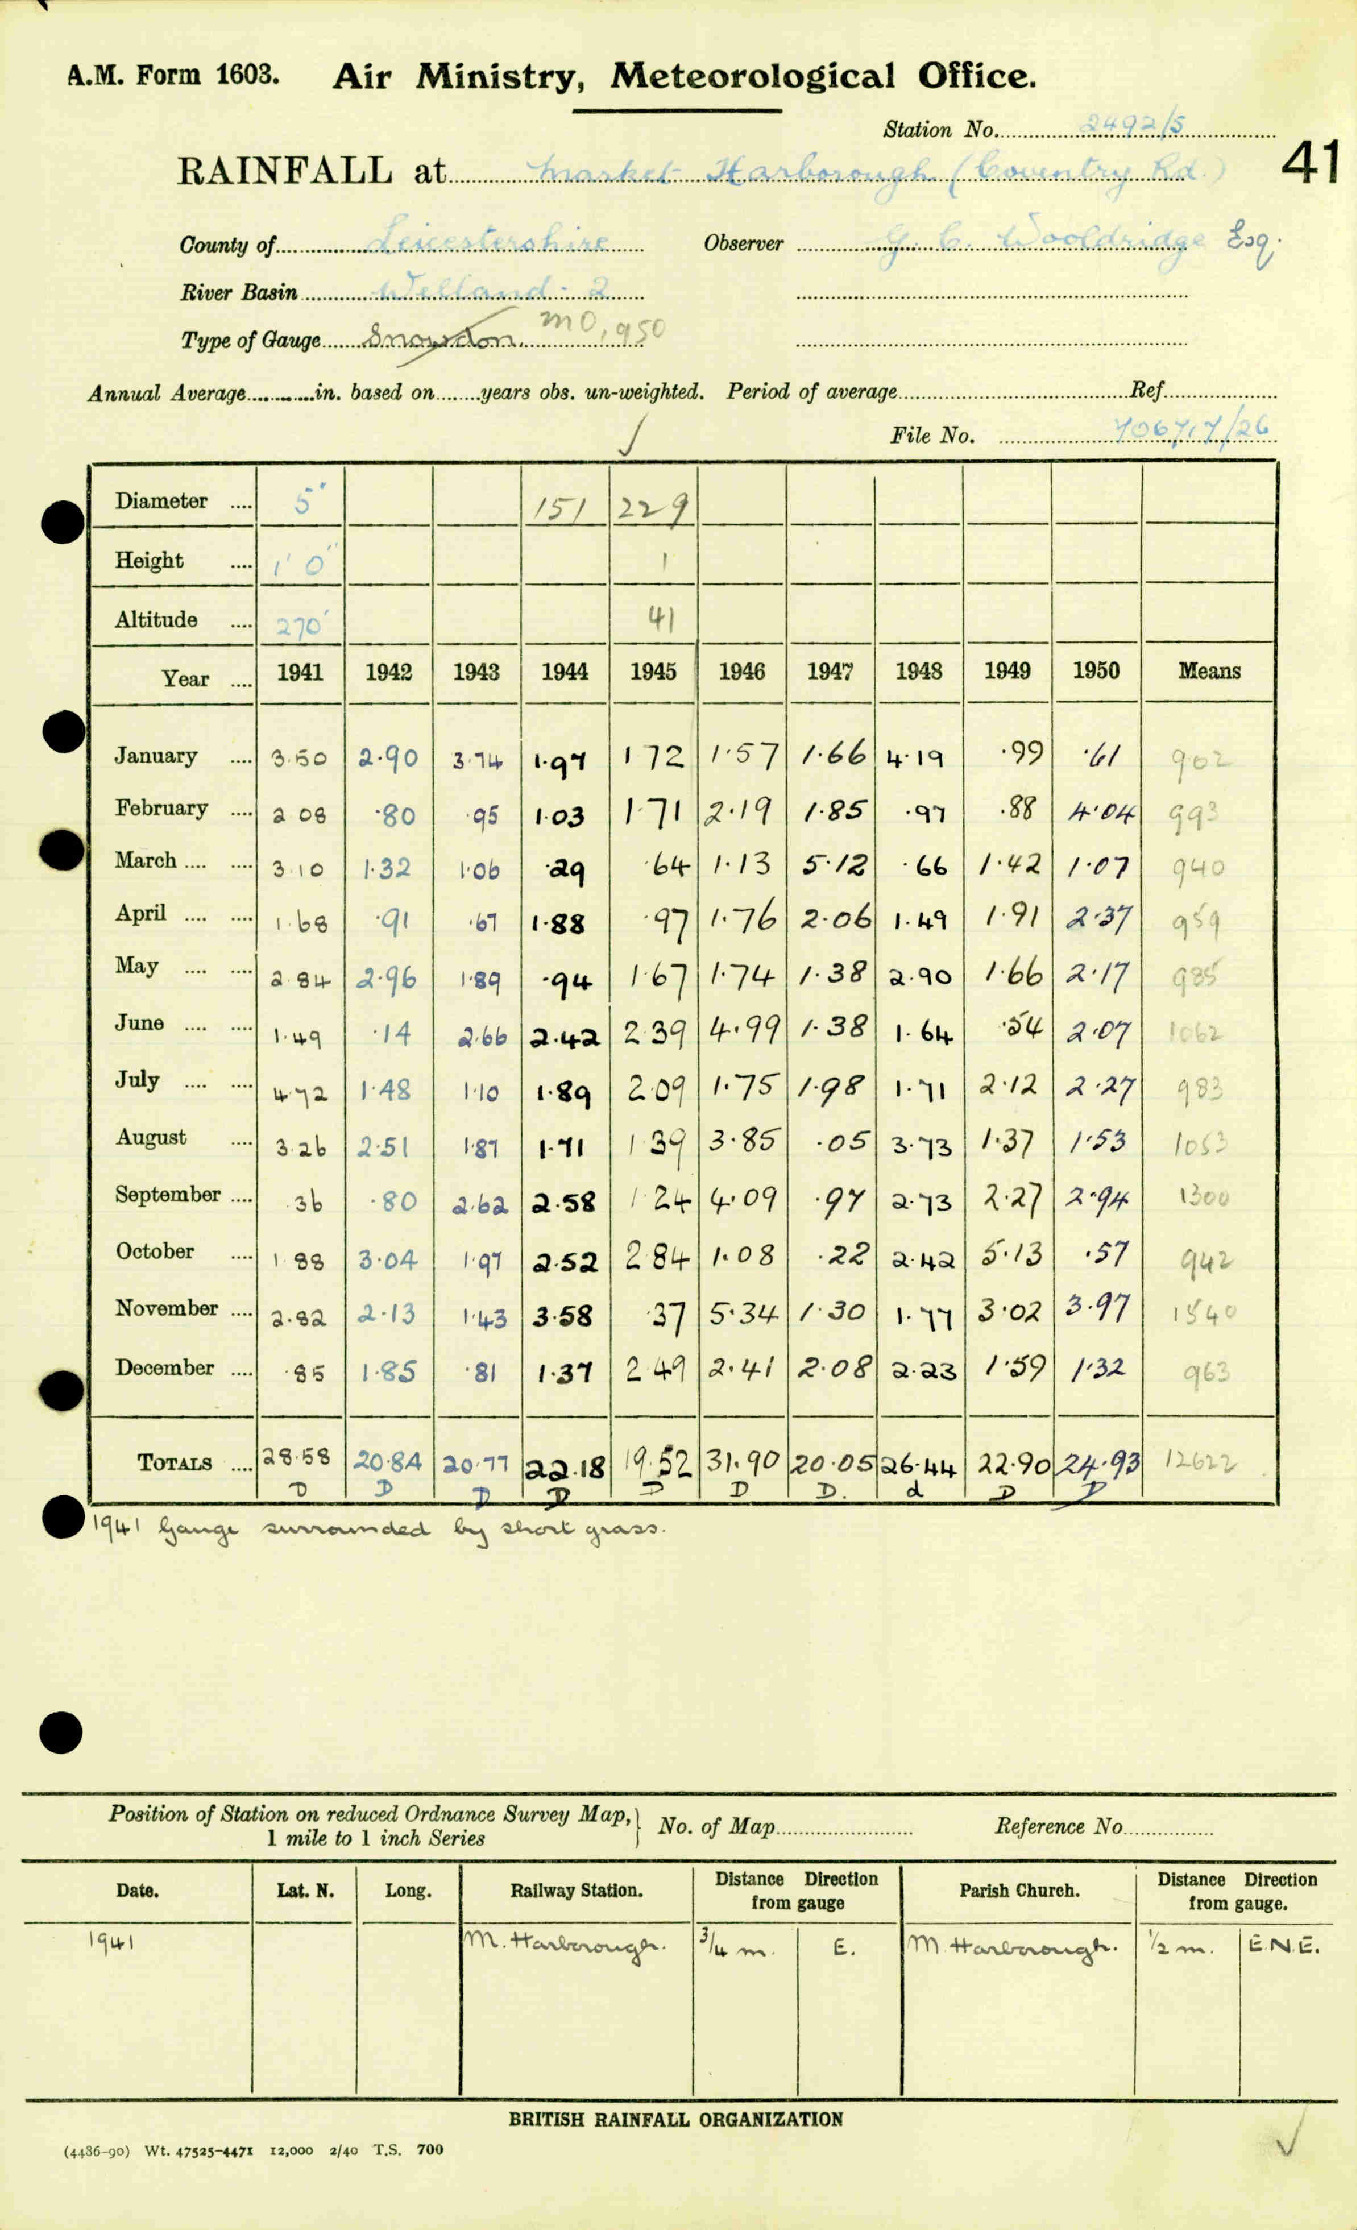 A.M. Form 1603. Air Ministry, Meteorological Office.
Station No. 2492/5
41
RAINFALL at Market Harborough (Coventry Rd.)
County of Leicestershire Observer G. C. Wooldridge Esq.
River Basin Welland - 2
Type of Gauge Snowdon. MO,950
Annual Average in. based on years obs. un-weighted. Period of average Ref.
File No. 706717/26
Diameter 5" 151 229
Height 1' 0" 1
Altitude 270' 41
Year 1941 1942 1943 1944 1945 1946 1947 1948 1949 1950 Means
January 3.50 2.90 3.74 1.97 1 72 1.57 1.66 4.19 .99 .61 902
February 2 08 .80 .95 1.03 1.71 2.19 1.85 .97 .88 4.04 993
March 3.10 1.32 1.06 .29 .64 1.13 5.12 .66 1.42 1.07 940
April 1.68 .91 .67 1.88 .97 1.76 2.06 1.49 1.91 2.37 959
May 2.84 2.96 1.89 .94 1.67 1.74 1.38 2.90 1.66 2.17 985
June 1.49 .14 2.66 2.42 2.39 4.99 1.38 1.64 .54 2.07 1062
July 4.72 1.48 1.10 1.89 2.09 1.75 1.98 1.71 2.12 2.27 983
August 3.26 2.51 1.87 1.71 1 39 3.85 .05 3.73 1.37 1.53 1053
September .36 .80 2.62 2.58 1 24 4.09 .97 2.73 2.27 2.94 1300
October 1.88 3.04 1.97 2.52 2.84 1.08 .22 2.42 5.13 .57 942
November 2.82 2.13 1.43 3.58 .37 5.34 1.30 1.77 3.02 3.97 1540
December .85 1.85 .81 1.37 2.49 2.41 2.08 2.23 1.59 1.32 963
TOTALS 28.58 20.84 20.77 22.18 19.52 31.90 20.05 26.44 22.90 24.93 12622
D D D D D D D. d D D
1941 Gauge surrounded by short grass.
Position of Station on reduced Ordnance Survey Map, 1 mile to 1 inch Series No. of Map Reference No.
Date. Lat. N. Long. Railway Station. Distance Direction from gauge Parish Church. Distance Direction from gauge.
1941 M. Harborough. 3/4 m. E. M. Harborough. 1/2 m. E.N.E.
BRITISH RAINFALL ORGANIZATION
(4436-90) Wt. 47525-4471 12,000 2/40 T.S. 700